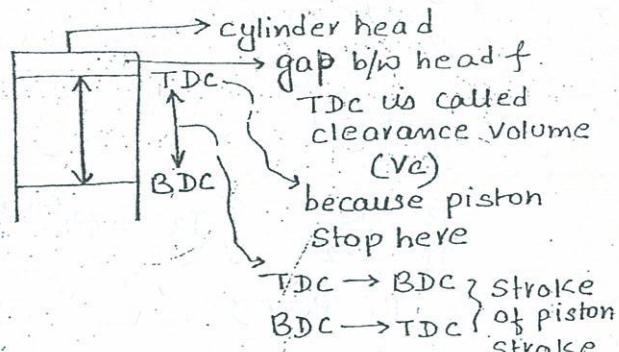 cylinder head
gap b/w head &
TDC is called
clearance volume
(Vc)
TDC
BDC
because piston
stop here
TDC → BDC } stroke
BDC → TDC of piston
stroke